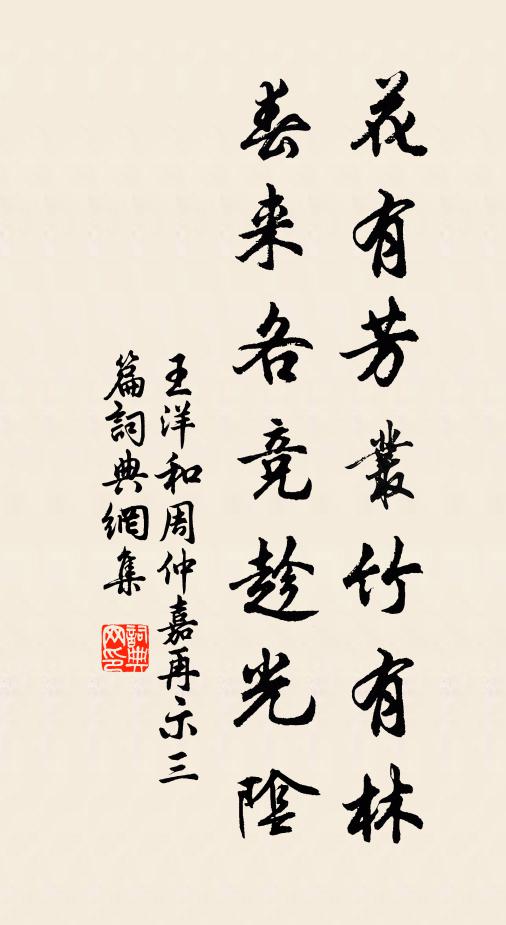 花有芳叢竹有林
春来各競趁光陰
王洋和周仲嘉再示三
篇詞典網集
詞典网印